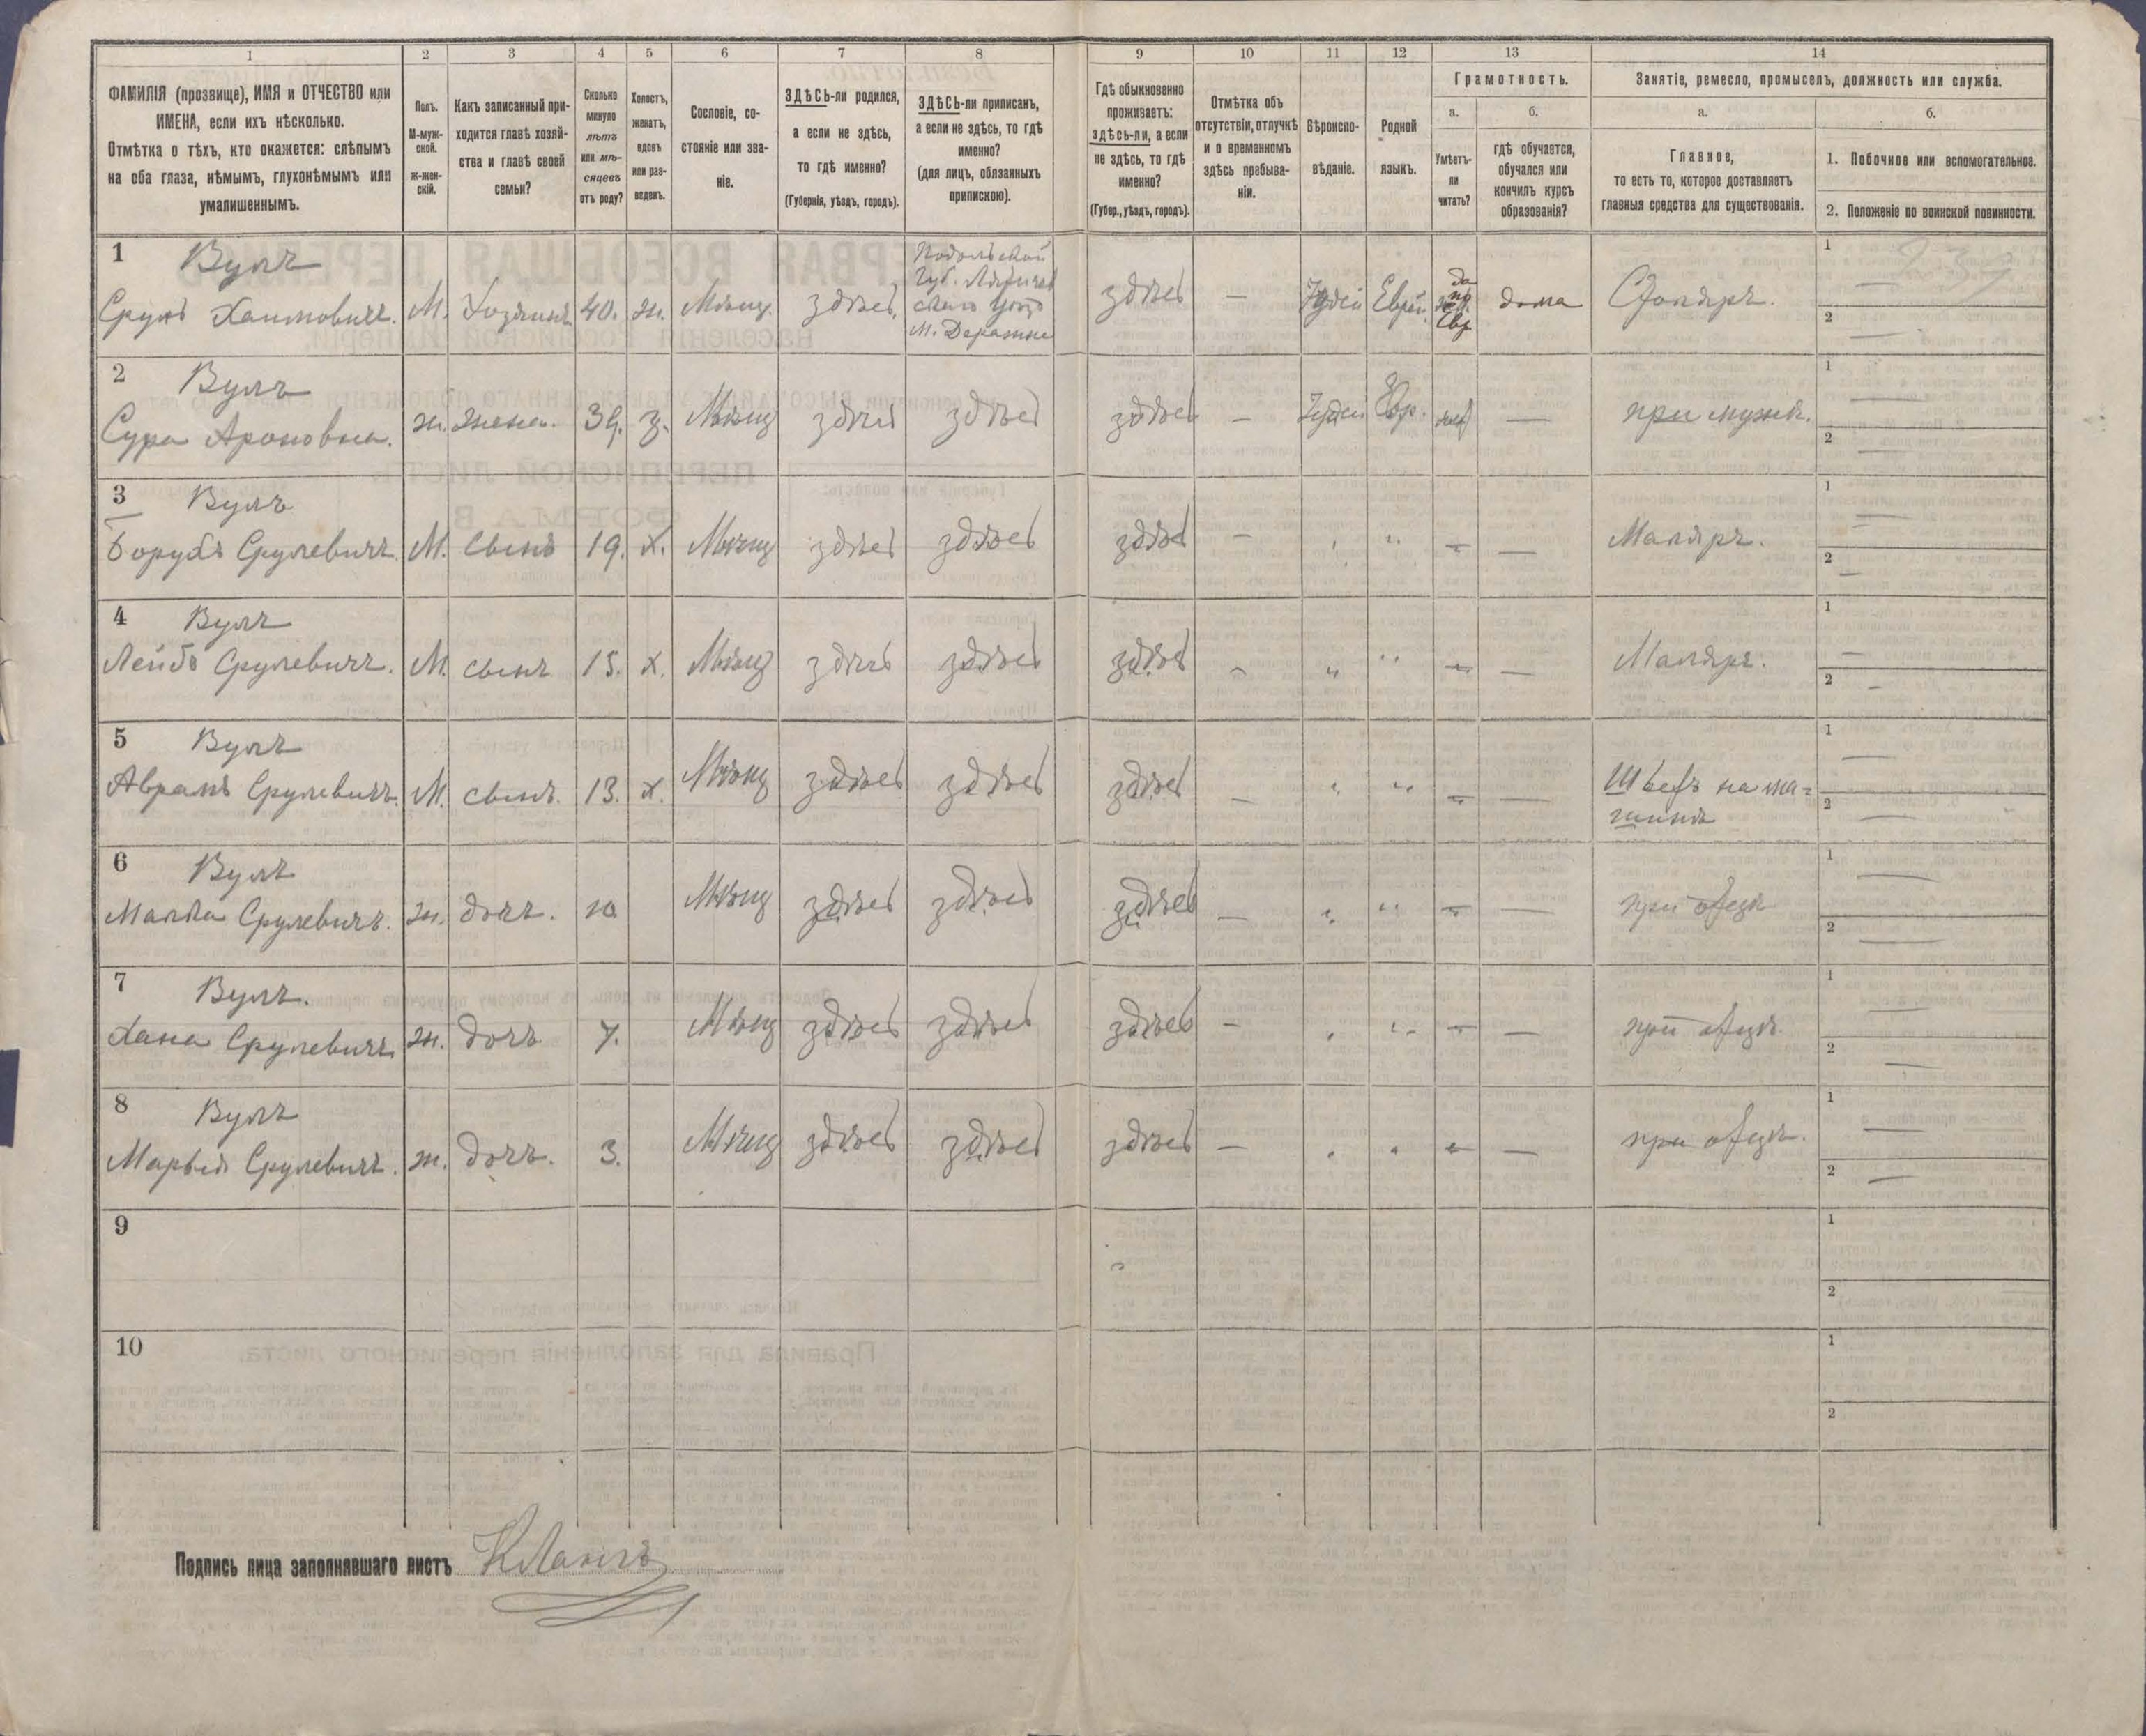 1 2 3 4 5 6 7 8 9 10 11 12 13 14
ФАМИЛІЯ (прозвище), ИМЯ и ОТЧЕСТВО или
ИМЕНА, если ихъ нѣсколько.
Отмѣтка о тѣхъ, кто окажется: слѣпымъ
на оба глаза, нѣмымъ, глухонѣмымъ или
умалишеннымъ.
Полъ.
М-муж-
ской.
Ж-жен-
скій.
Какъ записанный при-
ходится главѣ хозяй-
ства и главѣ своей
семьи?
Сколько
минуло
лѣтъ
или мѣ-
сяцевъ
отъ роду?
Холостъ,
женатъ,
вдовъ
или раз-
веденъ.
Сословіе, со-
стояніе или зва-
ніе.
ЗДѢСЬ-ли родился,
а если не здѣсь,
то гдѣ именно?
(Губернія, уѣздъ, городъ).
ЗДѢСЬ-ли приписанъ,
а если не здѣсь, то гдѣ
именно?
(для лицъ, обязанныхъ
припискою).
Гдѣ обыкновенно
проживаетъ:
здѣсь-ли, а если
не здѣсь, то гдѣ
именно?
(Губер., уѣздъ, городъ).
Отмѣтка объ
отсутствіи, отлучкѣ
и о временномъ
здѣсь пребыва-
ніи.
Вѣроиспо-
вѣданіе.
Родной
языкъ.
Грамотность.
а.
Умѣетъ-
ли
читать?
б.
гдѣ обучается,
обучался или
кончилъ курсъ
образованія?
Занятіе, ремесло, промыселъ, должность или служба.
а.
Главное,
то есть то, которое доставляетъ
главныя средства для существованія.
б.
1. Побочное или вспомогательное.
2. Положеніе по воинской повинности.
1 Вулъ
Сруль Хаимовичъ. М. Хозяинъ 40. ж. Мѣщ. здѣсь,
Подольской
Губ. Летичев
скаго уѣзд
М. Деражне
здѣсь — Іудей Еврей да по Евр дома Столяръ. 1 — 2 —
2 Вулъ
Сура Ароновна. ж. жена. 39. з. Мѣщ здѣсь здѣсь здѣсь — Іудей Евр. нѣт — при мужѣ. 1 — 2 —
3 Вулъ
Борухъ Срулевичъ. М. сынъ 19. х. Мѣщ здѣсь здѣсь здѣсь — " " — — Маляръ. 1 — 2 —
4 Вулъ
Лейбъ Срулевичъ. М. сынъ 15. х. Мѣщ здѣсь здѣсь здѣсь — " " — — Маляръ. 1 — 2 —
5 Вулъ
Аврамъ Срулевичъ. М. сынъ. 13. х. Мѣщ здѣсь здѣсь здѣсь — " " — — Швецъ на ма=
шинѣ 1 — 2 —
6 Вулъ
Малка Срулевичъ. ж. дочь. 10 Мѣщ здѣсь здѣсь здѣсь — " " — — при отцѣ 1 — 2 —
7 Вулъ.
Хана Срулевичъ ж. дочь 7. Мѣщ здѣсь здѣсь здѣсь — " " — — при отцѣ 1 — 2 —
8 Вулъ
Марьия Срулевичъ. ж. дочь. 3. Мѣщ здѣсь здѣсь здѣсь — " " — — при отцѣ. 1 — 2 —
9 1 2
10 1 2
Подпись лица заполнявшаго листъ